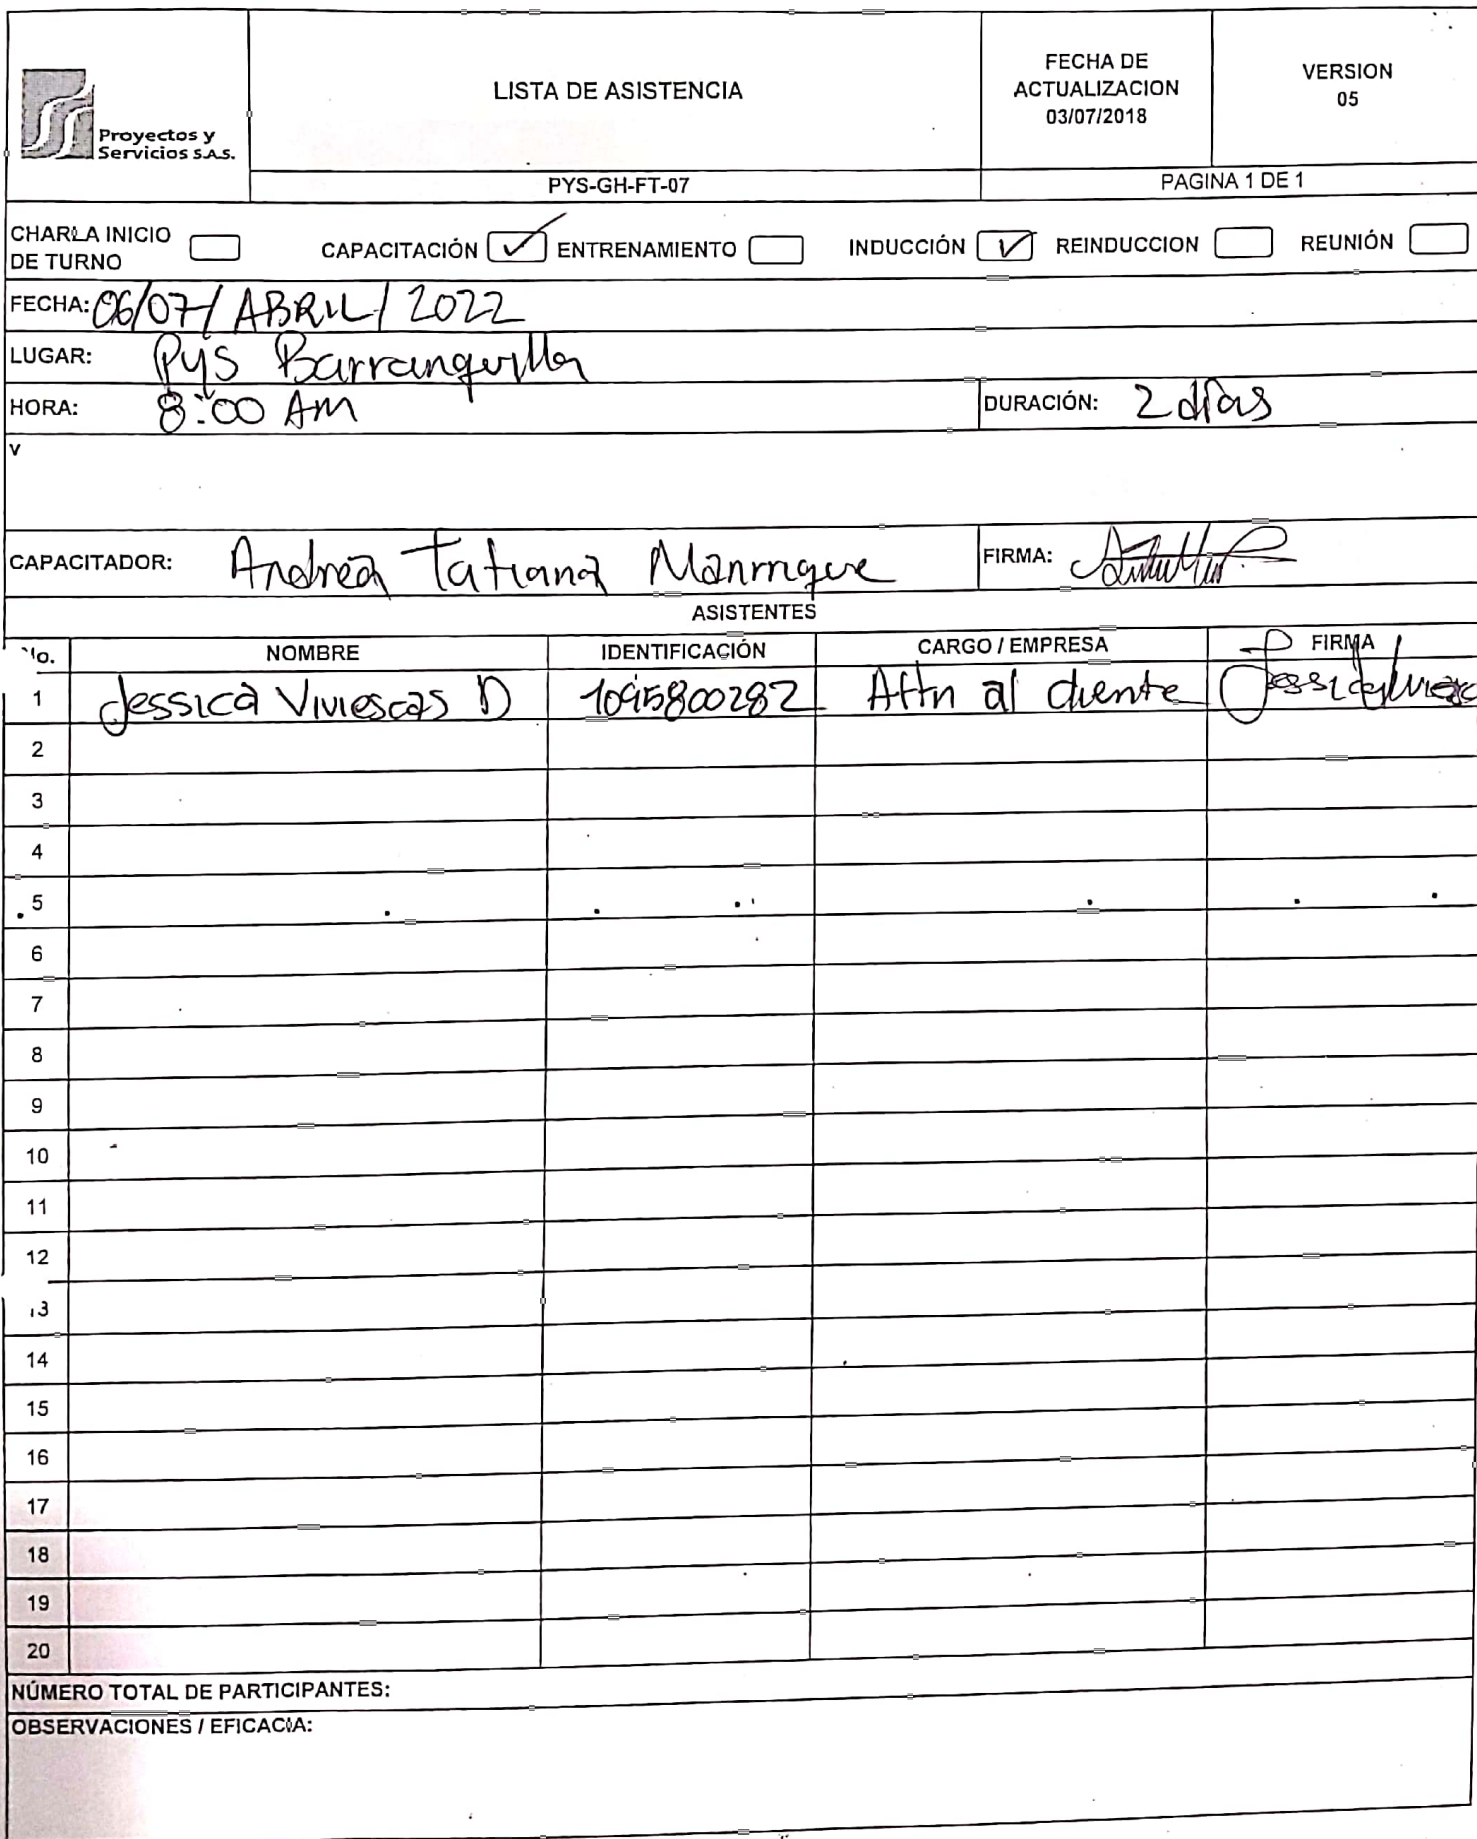 Proyectos y
Servicios S.A.S.
LISTA DE ASISTENCIA
FECHA DE
ACTUALIZACION
03/07/2018
VERSION
05
PYS-GH-FT-07
PAGINA 1 DE 1
CHARLA INICIO
DE TURNO
CAPACITACIÓN ✓ ENTRENAMIENTO INDUCCIÓN ✓ REINDUCCION REUNIÓN
FECHA: 06/07/ABRIL/2022
LUGAR: Pys Barranquilla
HORA: 8:00 AM DURACIÓN: 2 días
v
CAPACITADOR: Andrea Tatiana Manrique FIRMA:
ASISTENTES
No. NOMBRE IDENTIFICACIÓN CARGO / EMPRESA FIRMA
1 Jessica Viviescas D 1095800282 Attn al cliente
2
3
4
5
6
7
8
9
10
11
12
13
14
15
16
17
18
19
20
NÚMERO TOTAL DE PARTICIPANTES:
OBSERVACIONES / EFICACIA: